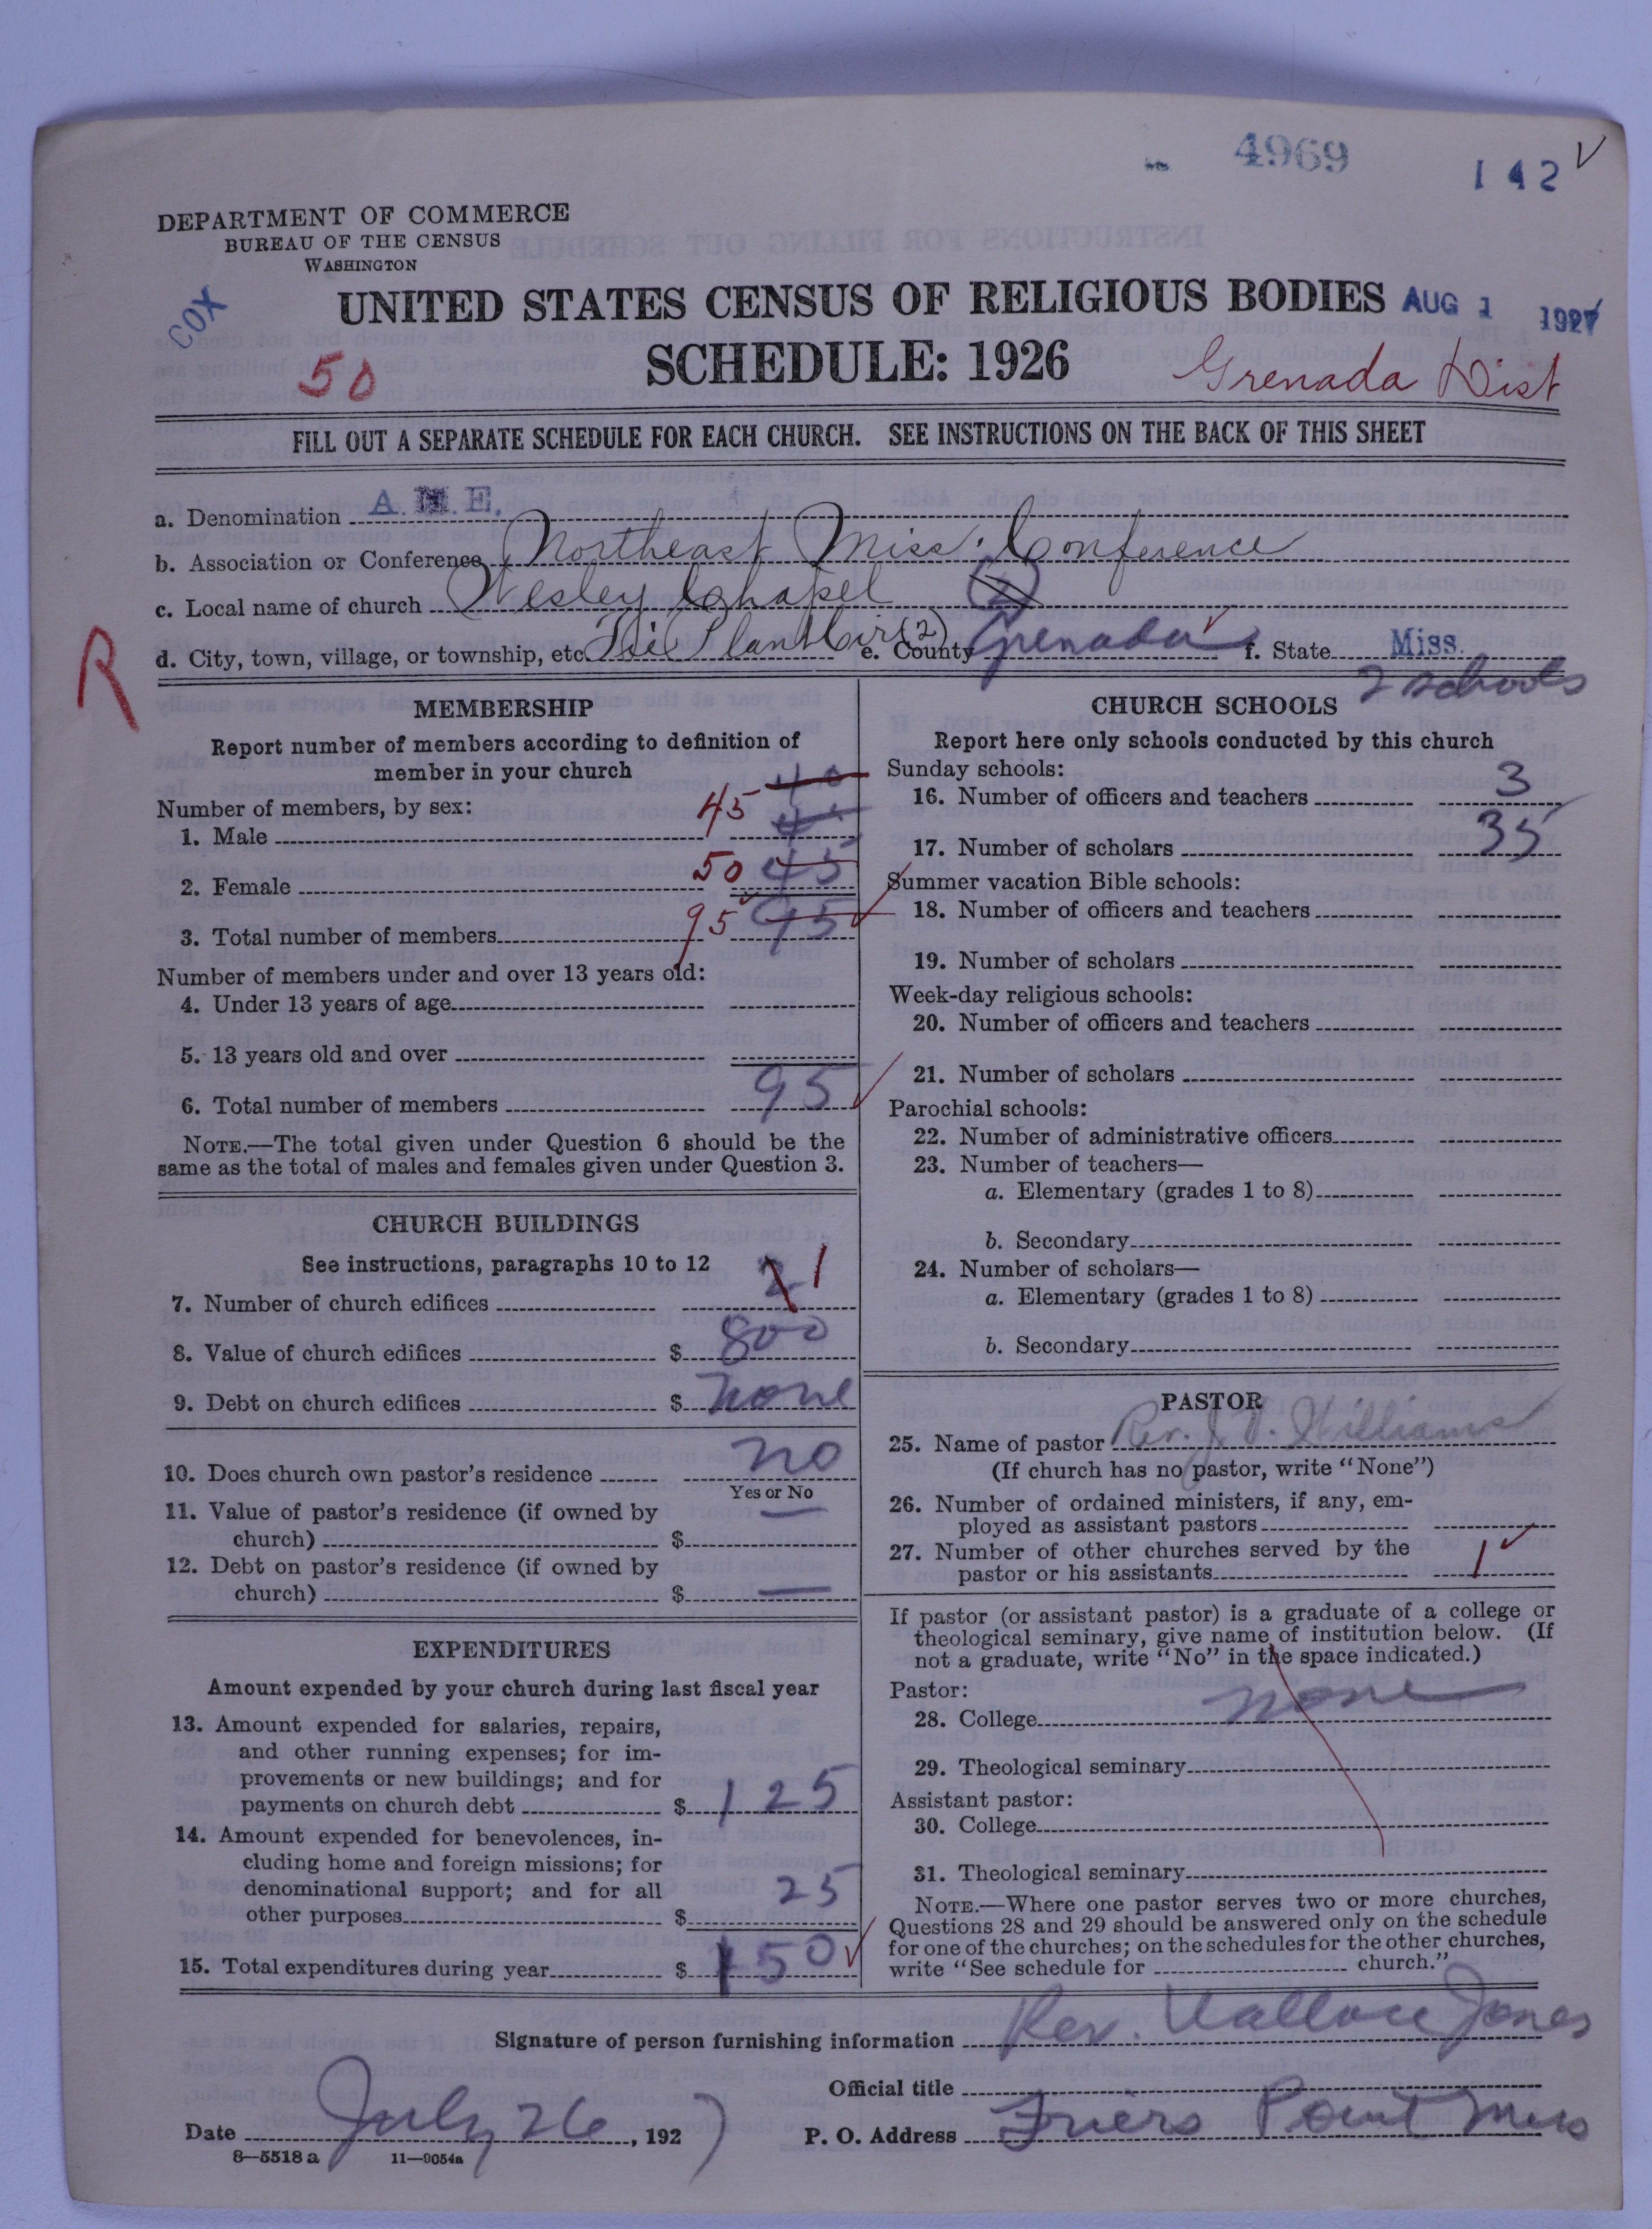 4969
142
DEPARTMENT OF COMMERCE
BUREAU OF THE CENSUS
WASHINGTON
COX
UNITED STATES CENSUS OF RELIGIOUS BODIES AUG 1 1927
50
SCHEDULE: 1926
Grenada Dist
FILL OUT A SEPARATE SCHEDULE FOR EACH CHURCH. SEE INSTRUCTIONS ON THE BACK OF THIS SHEET
a. Denomination A.M.E.
b. Association or Conference Northeast Miss. Conference
c. Local name of church Wesley Chapel
R
d. City, town, village, or township, etc. Tie Plant Cir (2) e. County Grenada f. State Miss.
MEMBERSHIP
Report number of members according to definition of
member in your church
Number of members, by sex:
1. Male 45
2. Female 50 45
3. Total number of members 95 95
Number of members under and over 13 years old:
4. Under 13 years of age
5. 13 years old and over
6. Total number of members 95
NOTE.—The total given under Question 6 should be the
same as the total of males and females given under Question 3.
CHURCH BUILDINGS
See instructions, paragraphs 10 to 12
7. Number of church edifices 2 1
8. Value of church edifices $ 800
9. Debt on church edifices $ None
10. Does church own pastor's residence no
Yes or No
11. Value of pastor's residence (if owned by
church) $ —
12. Debt on pastor's residence (if owned by
church) $ —
EXPENDITURES
Amount expended by your church during last fiscal year
13. Amount expended for salaries, repairs,
and other running expenses; for im-
provements or new buildings; and for
payments on church debt $ 125
14. Amount expended for benevolences, in-
cluding home and foreign missions; for
denominational support; and for all
other purposes $ 25
15. Total expenditures during year $ 150
2 schools
CHURCH SCHOOLS
Report here only schools conducted by this church
Sunday schools:
16. Number of officers and teachers 3
17. Number of scholars 35
Summer vacation Bible schools:
18. Number of officers and teachers
19. Number of scholars
Week-day religious schools:
20. Number of officers and teachers
21. Number of scholars
Parochial schools:
22. Number of administrative officers
23. Number of teachers—
a. Elementary (grades 1 to 8)
b. Secondary
24. Number of scholars—
a. Elementary (grades 1 to 8)
b. Secondary
PASTOR
25. Name of pastor Rev. J. V. Williams
(If church has no pastor, write "None")
26. Number of ordained ministers, if any, em-
ployed as assistant pastors
27. Number of other churches served by the
pastor or his assistants 1
If pastor (or assistant pastor) is a graduate of a college or
theological seminary, give name of institution below. (If
not a graduate, write "No" in the space indicated.)
Pastor:
28. College none
29. Theological seminary
Assistant pastor:
30. College
31. Theological seminary
NOTE.—Where one pastor serves two or more churches,
Questions 28 and 29 should be answered only on the schedule
for one of the churches; on the schedules for the other churches,
write "See schedule for church."
Signature of person furnishing information Rev. Wallace Jones
Official title
Date July 26, 1927 P. O. Address Friers Point Miss
8—5518 a 11—9054a